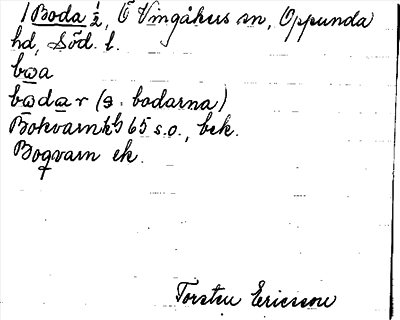 /Boda ½, Ö Vingåkers sn, Oppunda
hd, Söd. l.
bωa
bωdar (s. bodarna)
Bokvarn kb 65 s.o., bek.
Boqvarn ek.
Torsten Ericsson